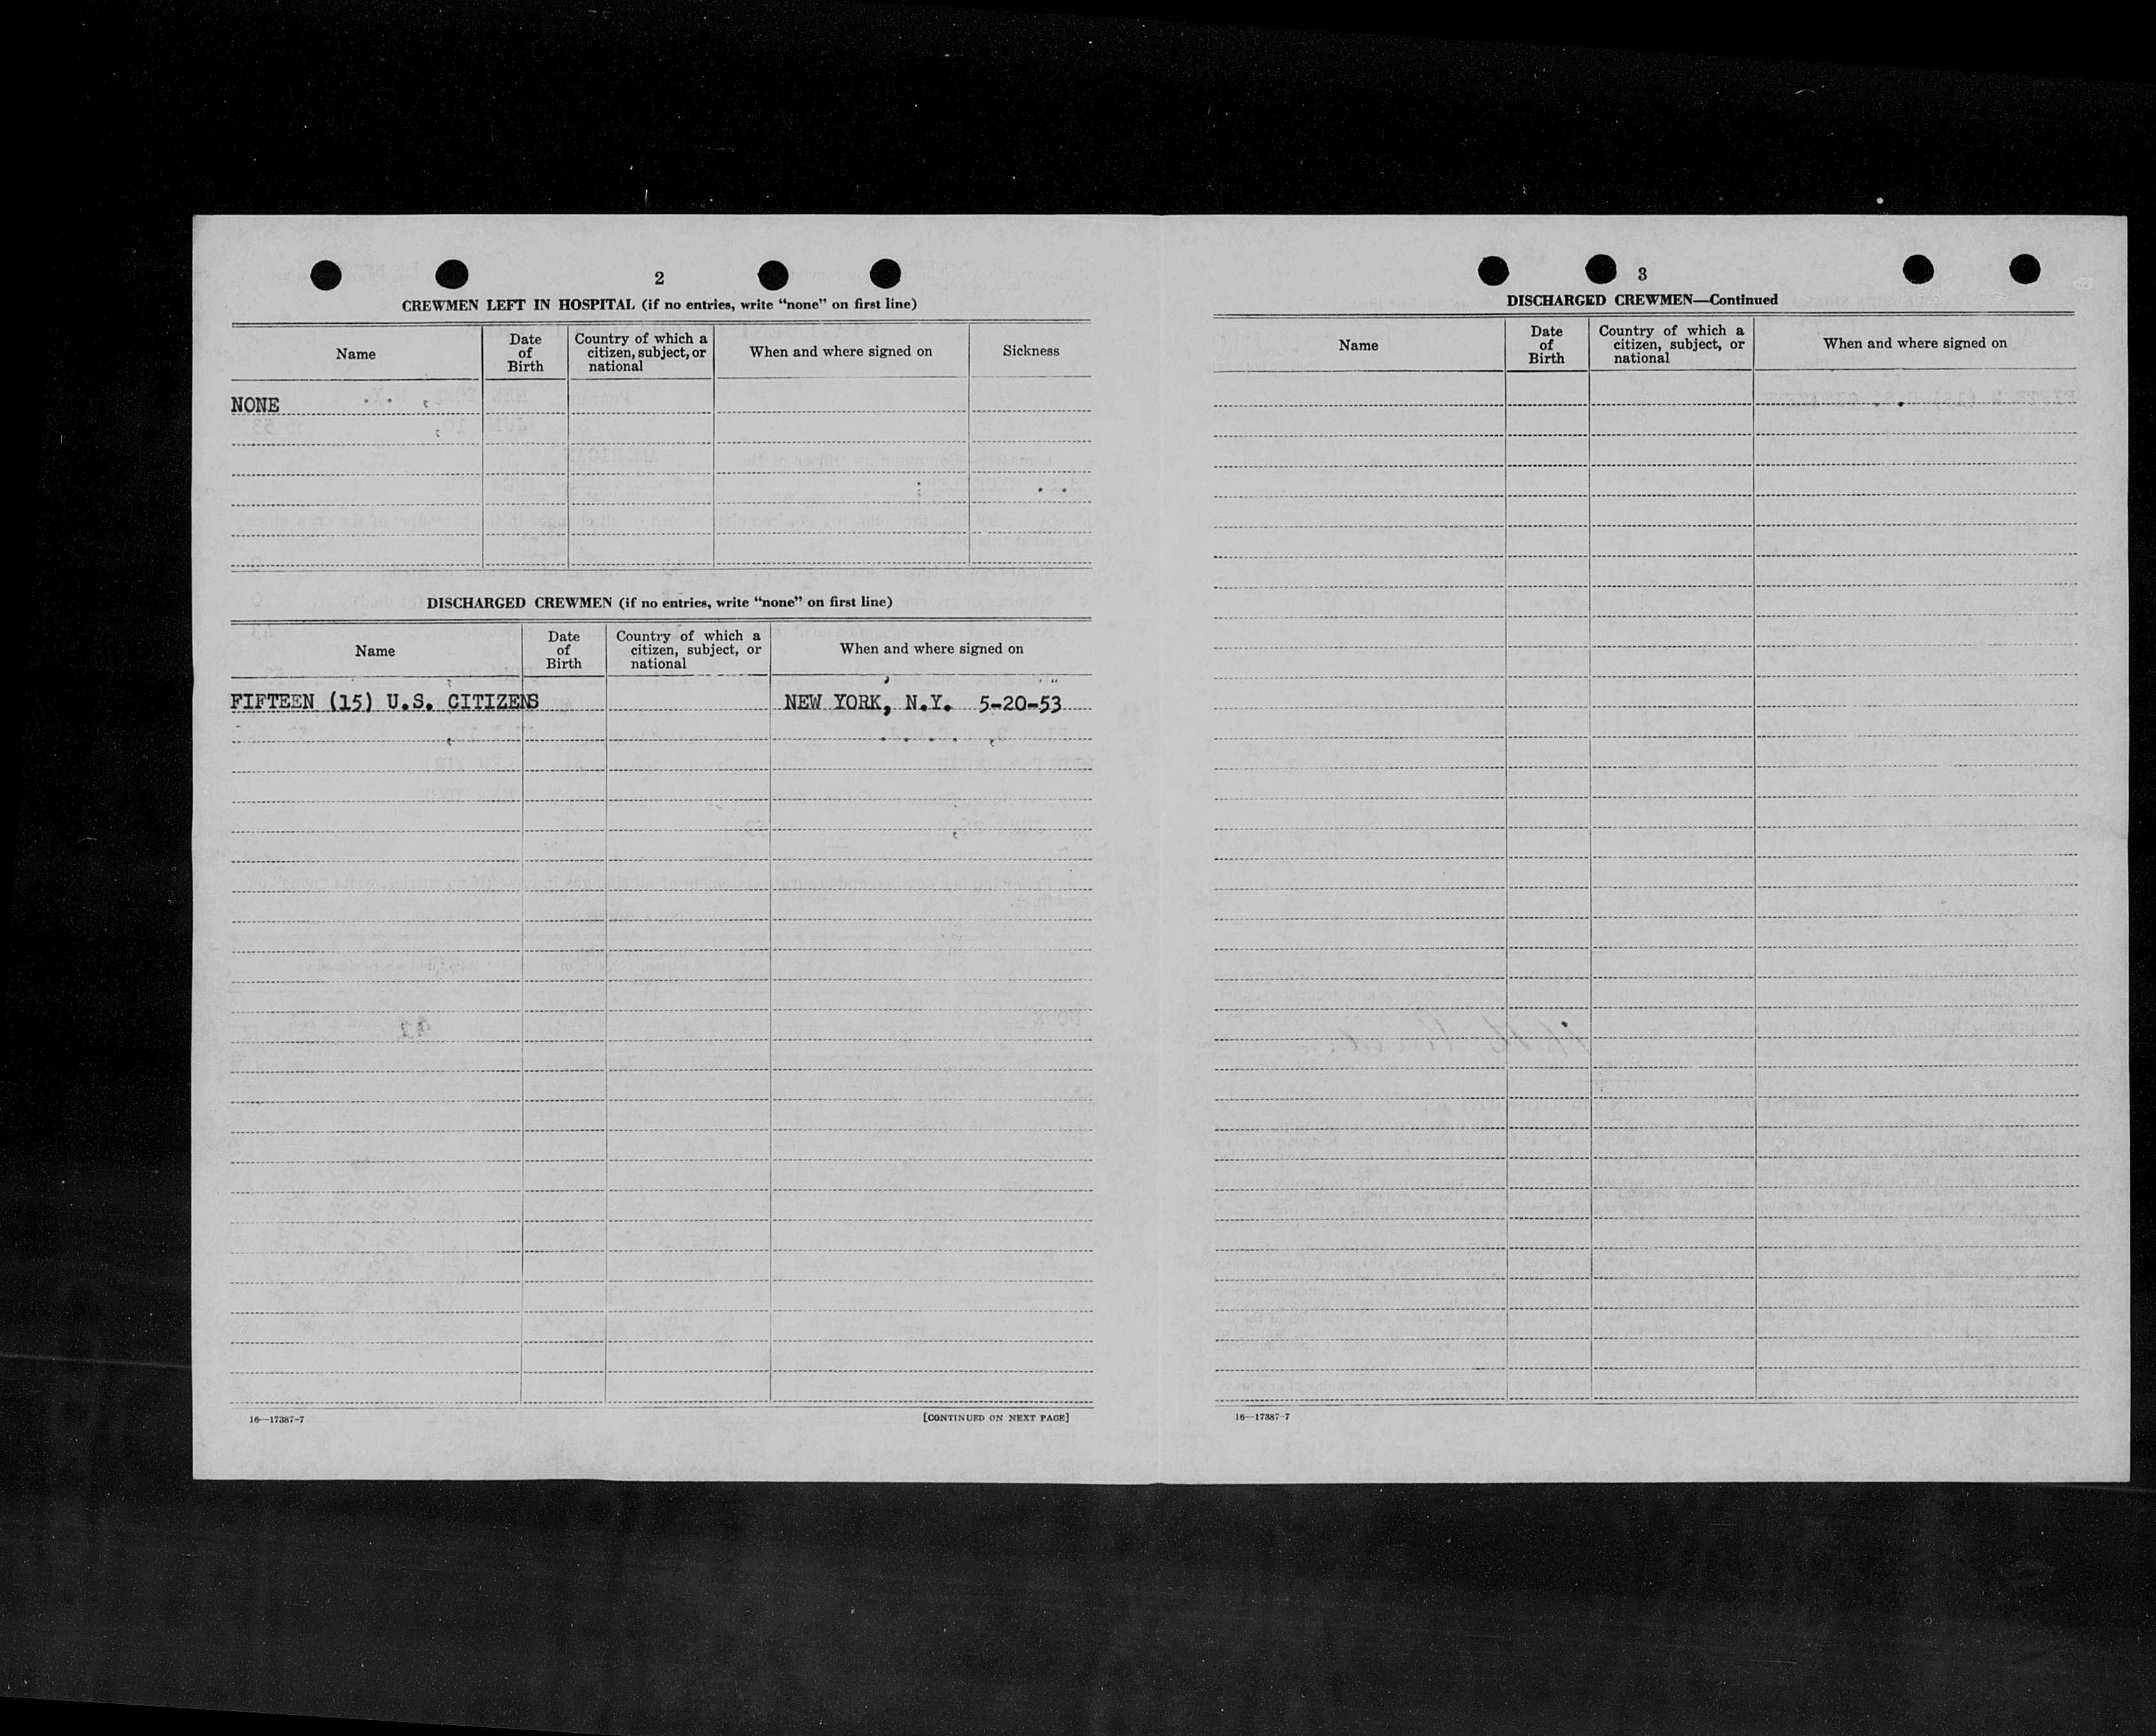 2
CREWMEN LEFT IN HOSPITAL (if no entries, write “none” on first line)
Name
Date of Birth
Country of which a citizen, subject, or national
When and where signed on
Sickness
NONE
DISCHARGED CREWMEN (if no entries, write “none” on first line)
Name
Date of Birth
Country of which a citizen, subject, or national
When and where signed on
FIFTEEN (15) U.S. CITIZENS NEW YORK, N.Y. 5-20-53
16—17387-7
[CONTINUED ON NEXT PAGE]
3
DISCHARGED CREWMEN—Continued
Name
Date of Birth
Country of which a citizen, subject, or national
When and where signed on
16—17387-7